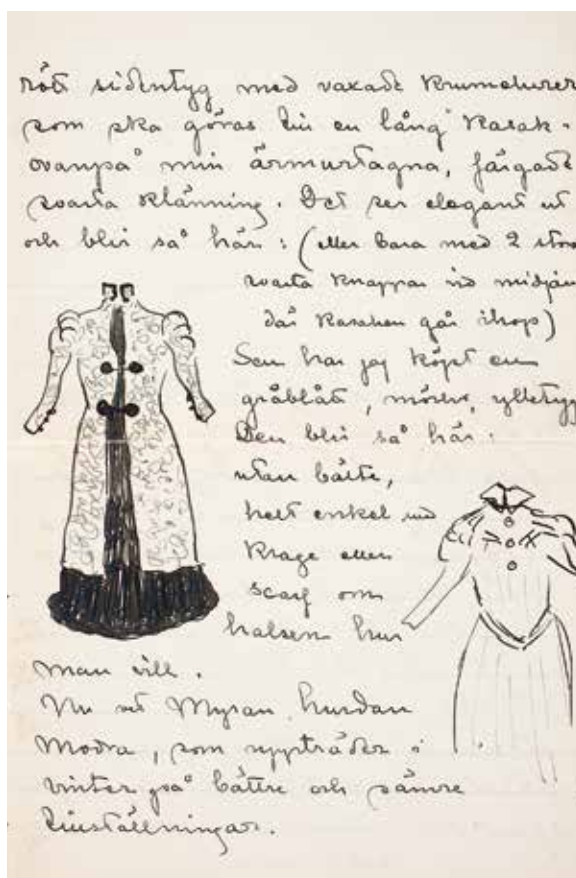 rött sidentyg med vaxade krumelurer
som ska göras till en lång kasak -
ovanpå min ärmurtagna, färgade
svarta klänning. Det ser elegant ut
och blir så här: (eller bara med 2 stora
svarta knappar vid midjan
där kasaken går ihop)
Sen har jag köpt en
gråblått, mörkt, ylletyg
Den blir så här:
utan bälte,
helt enkel med
krage eller
scarf om
halsen hur
man vill.
Nu vet Myran hurdan
Modra, som uppträder i
vinter på bättre och sämre
tillställningar.